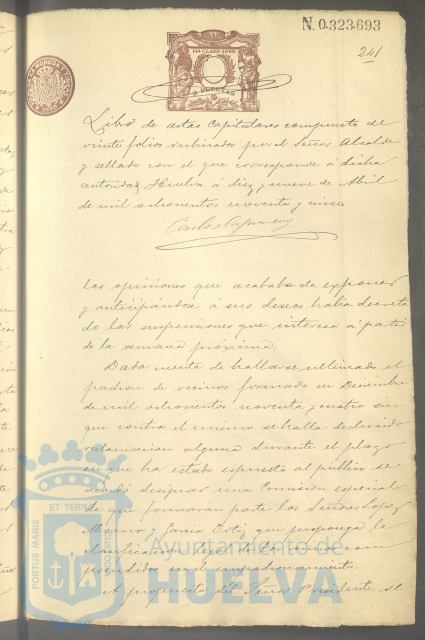 N. 0.323.693
11ª CLASE-1895
2 PESETAS
241
Libro de actas Capitulares compuesto de
veinte folios rubricados por el Señor Alcalde
y sellado con el que corresponde á dicha
autoridad, Huelva á diez y nueve de Abril
de mil ochocientos noventa y cinco
las opiniones que acababa de exponer
y anticipándose á sus deseos habia decreta
do las suspensiones que interesa á partir
de la semana próxima.
Dada cuenta de hallarse ultimado el
padron de vecinos formado en Diciembre
de mil ochocientos noventa y cuatro sin
que contra el mismo se halla deducido
reclamacion alguna durante el plazo
en que ha estado expuesto al publico se
acordó designar una Comision especial
de que formaran parte los Señores Lopez
Moreno y Garcia Ortiz que proponga la
clasificacion legal de los vecinos com
prendidos en el empadronamiento.
A propuesta del Señor Presidente se
ET TERRÆ
PORTUS MARIS
CUSTODIA
Ayuntamiento de
HUELVA